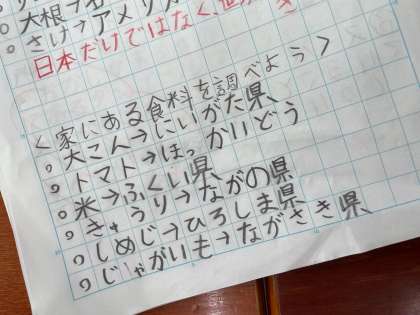 大根→
さけ→アメリカ
日本だけではなく、世
<家にある食料を調べよう>
○大こん→にいがた県
○トマト→ほっかいどう
○米→ふくい県
○きゅうり→ながの県
○しめじ→ひろしま県
○じゃがいも→ながさき県